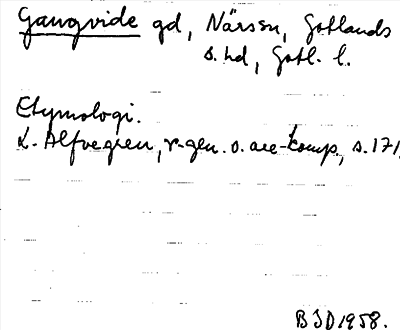 Gangvide gd, Närs sn, Gotlands
s. hd, Gotl. l.
Etymologi.
L. Alfvegren, r-gen. o. ace-komp., s. 171.
B J D 1958.